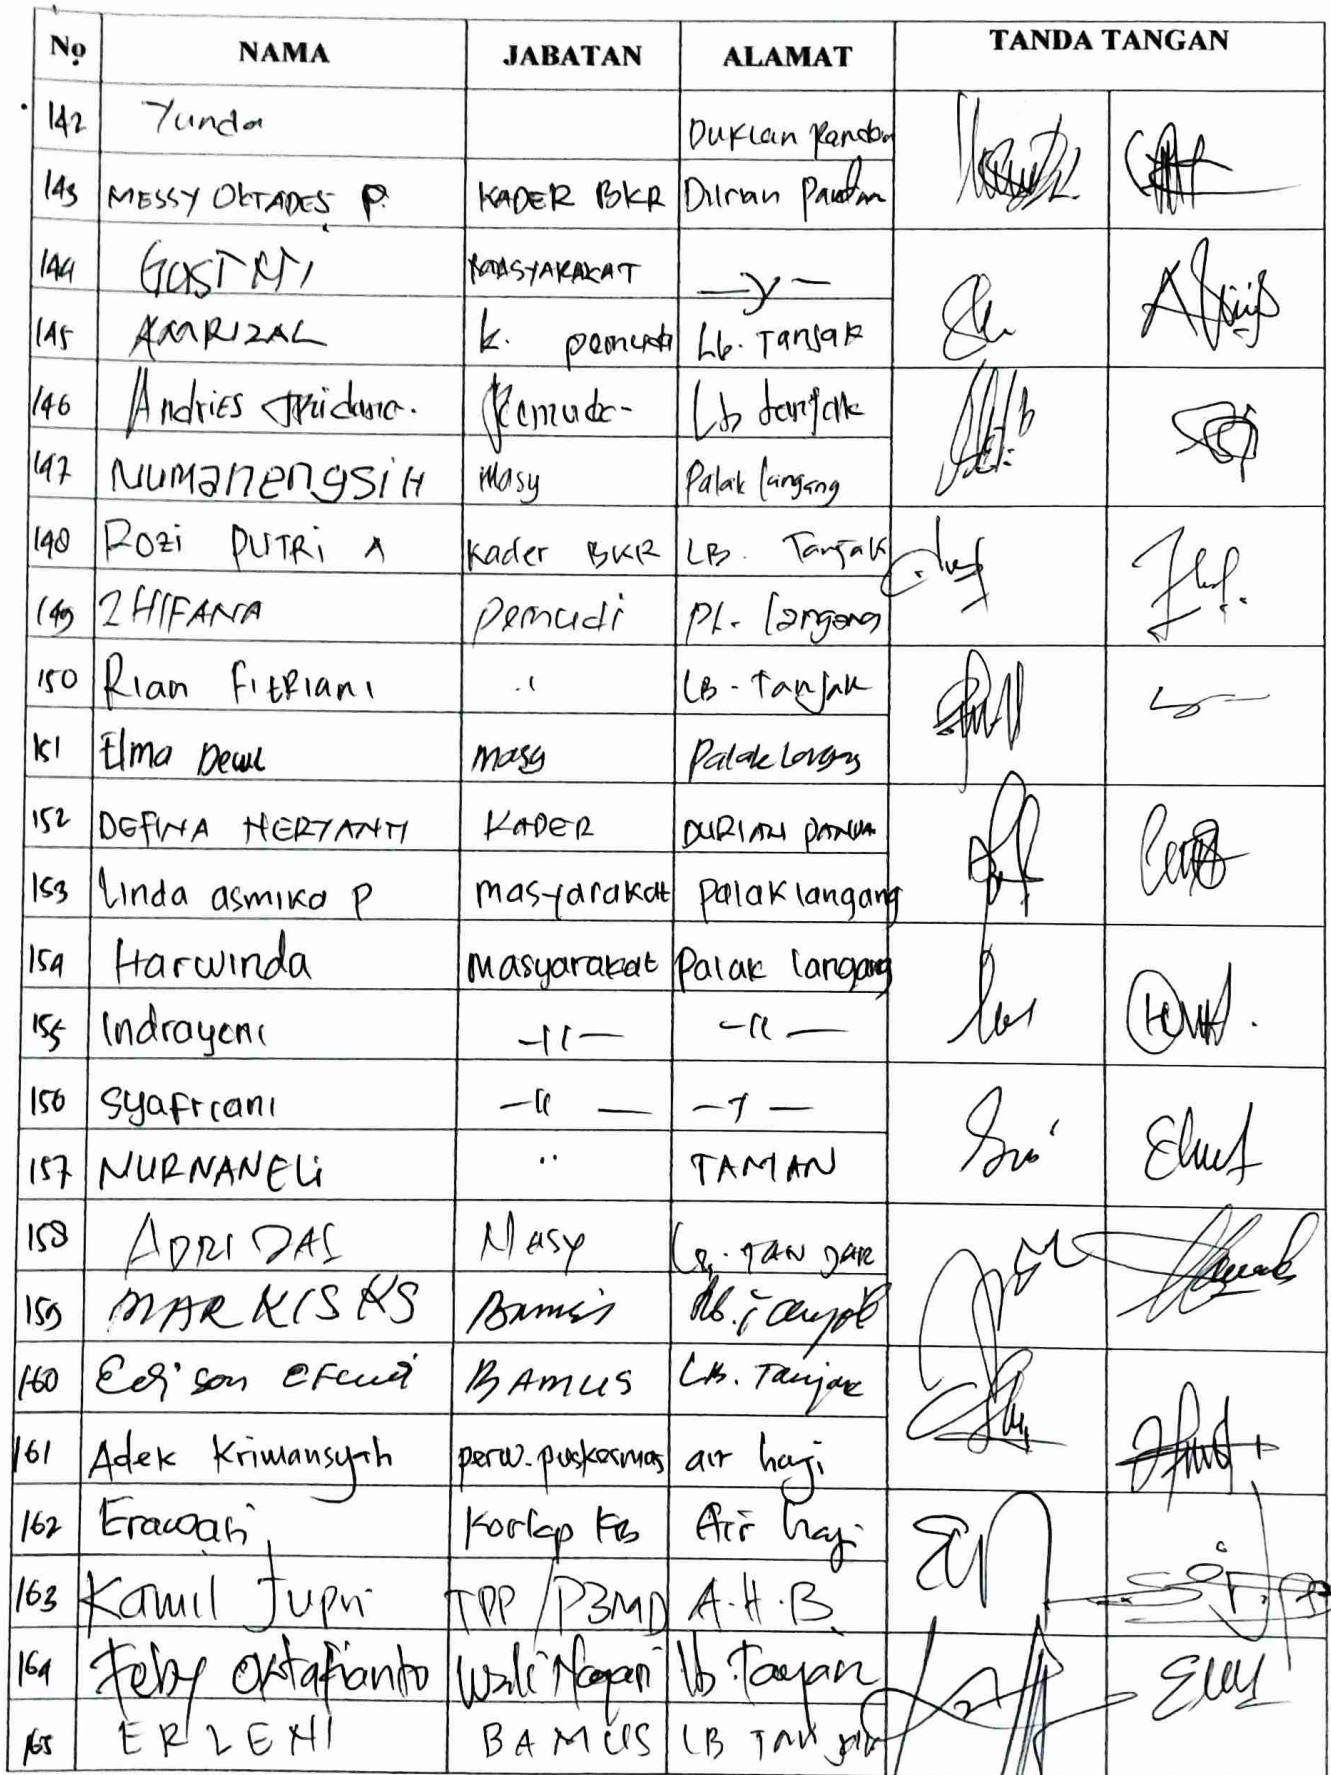 No NAMA JABATAN ALAMAT TANDA TANGAN
142 Yunda Durian Pandan
143 MESSY OKTADES P. KADER BKR Durian Pandan
144 GUSTATI MASYARAKAT —y—
145 AMRIZAL k. pemuda Lb. Tanjak
146 Andries Pemuda Lb tanjak
147 NUMANENGSIH Masy Palak langang
148 Rozi PUTRi A Kader BKR LB. Tanjak
149 ZHIFANA Pemudi PL. langang
150 Rian FitRiani .. LB. Tanjak
151 Elma Dewi Masy Palak Langang
152 DEFINA HERYANTI KADER DURIAN PANDAN
153 Linda asmika P masyarakat palak langang
154 Harwinda Masyarakat Palak langang
155 Indrayeni —11— —11—
156 Syafriani —11— —y—
157 NURNANELi .. TAMAN
158 ADRIDAS Masy LB. TANJAK
159 MARKIS KS Bamus Lb. Tanjak
160 Edison Efendi BAMUS LB. Tanjak
161 Adek Krimansyah perw. puskesmas air haji
162 Erawati Korlap KB Air haji
163 Kamil Jupri TPP/P3MD A.H.B.
164 Feby Oktafianto Wali Nagari lb. Tanjak
165 ERLENI BAMUS LB TANJAK